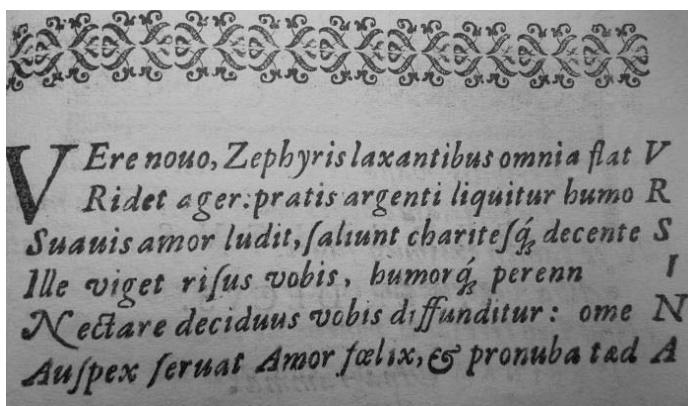 VEre nouo, Zephyris laxantibus omnia flat V
Ridet ager: pratis argenti liquitur humo R
Suauis amor ludit, ſaliunt chariteſq́; decente S
Ille viget riſus vobis, humorq́; perenn I
Nectare deciduus vobis diffunditur: ome N
Auſpex ſeruat Amor fœlix, & pronuba tæd A